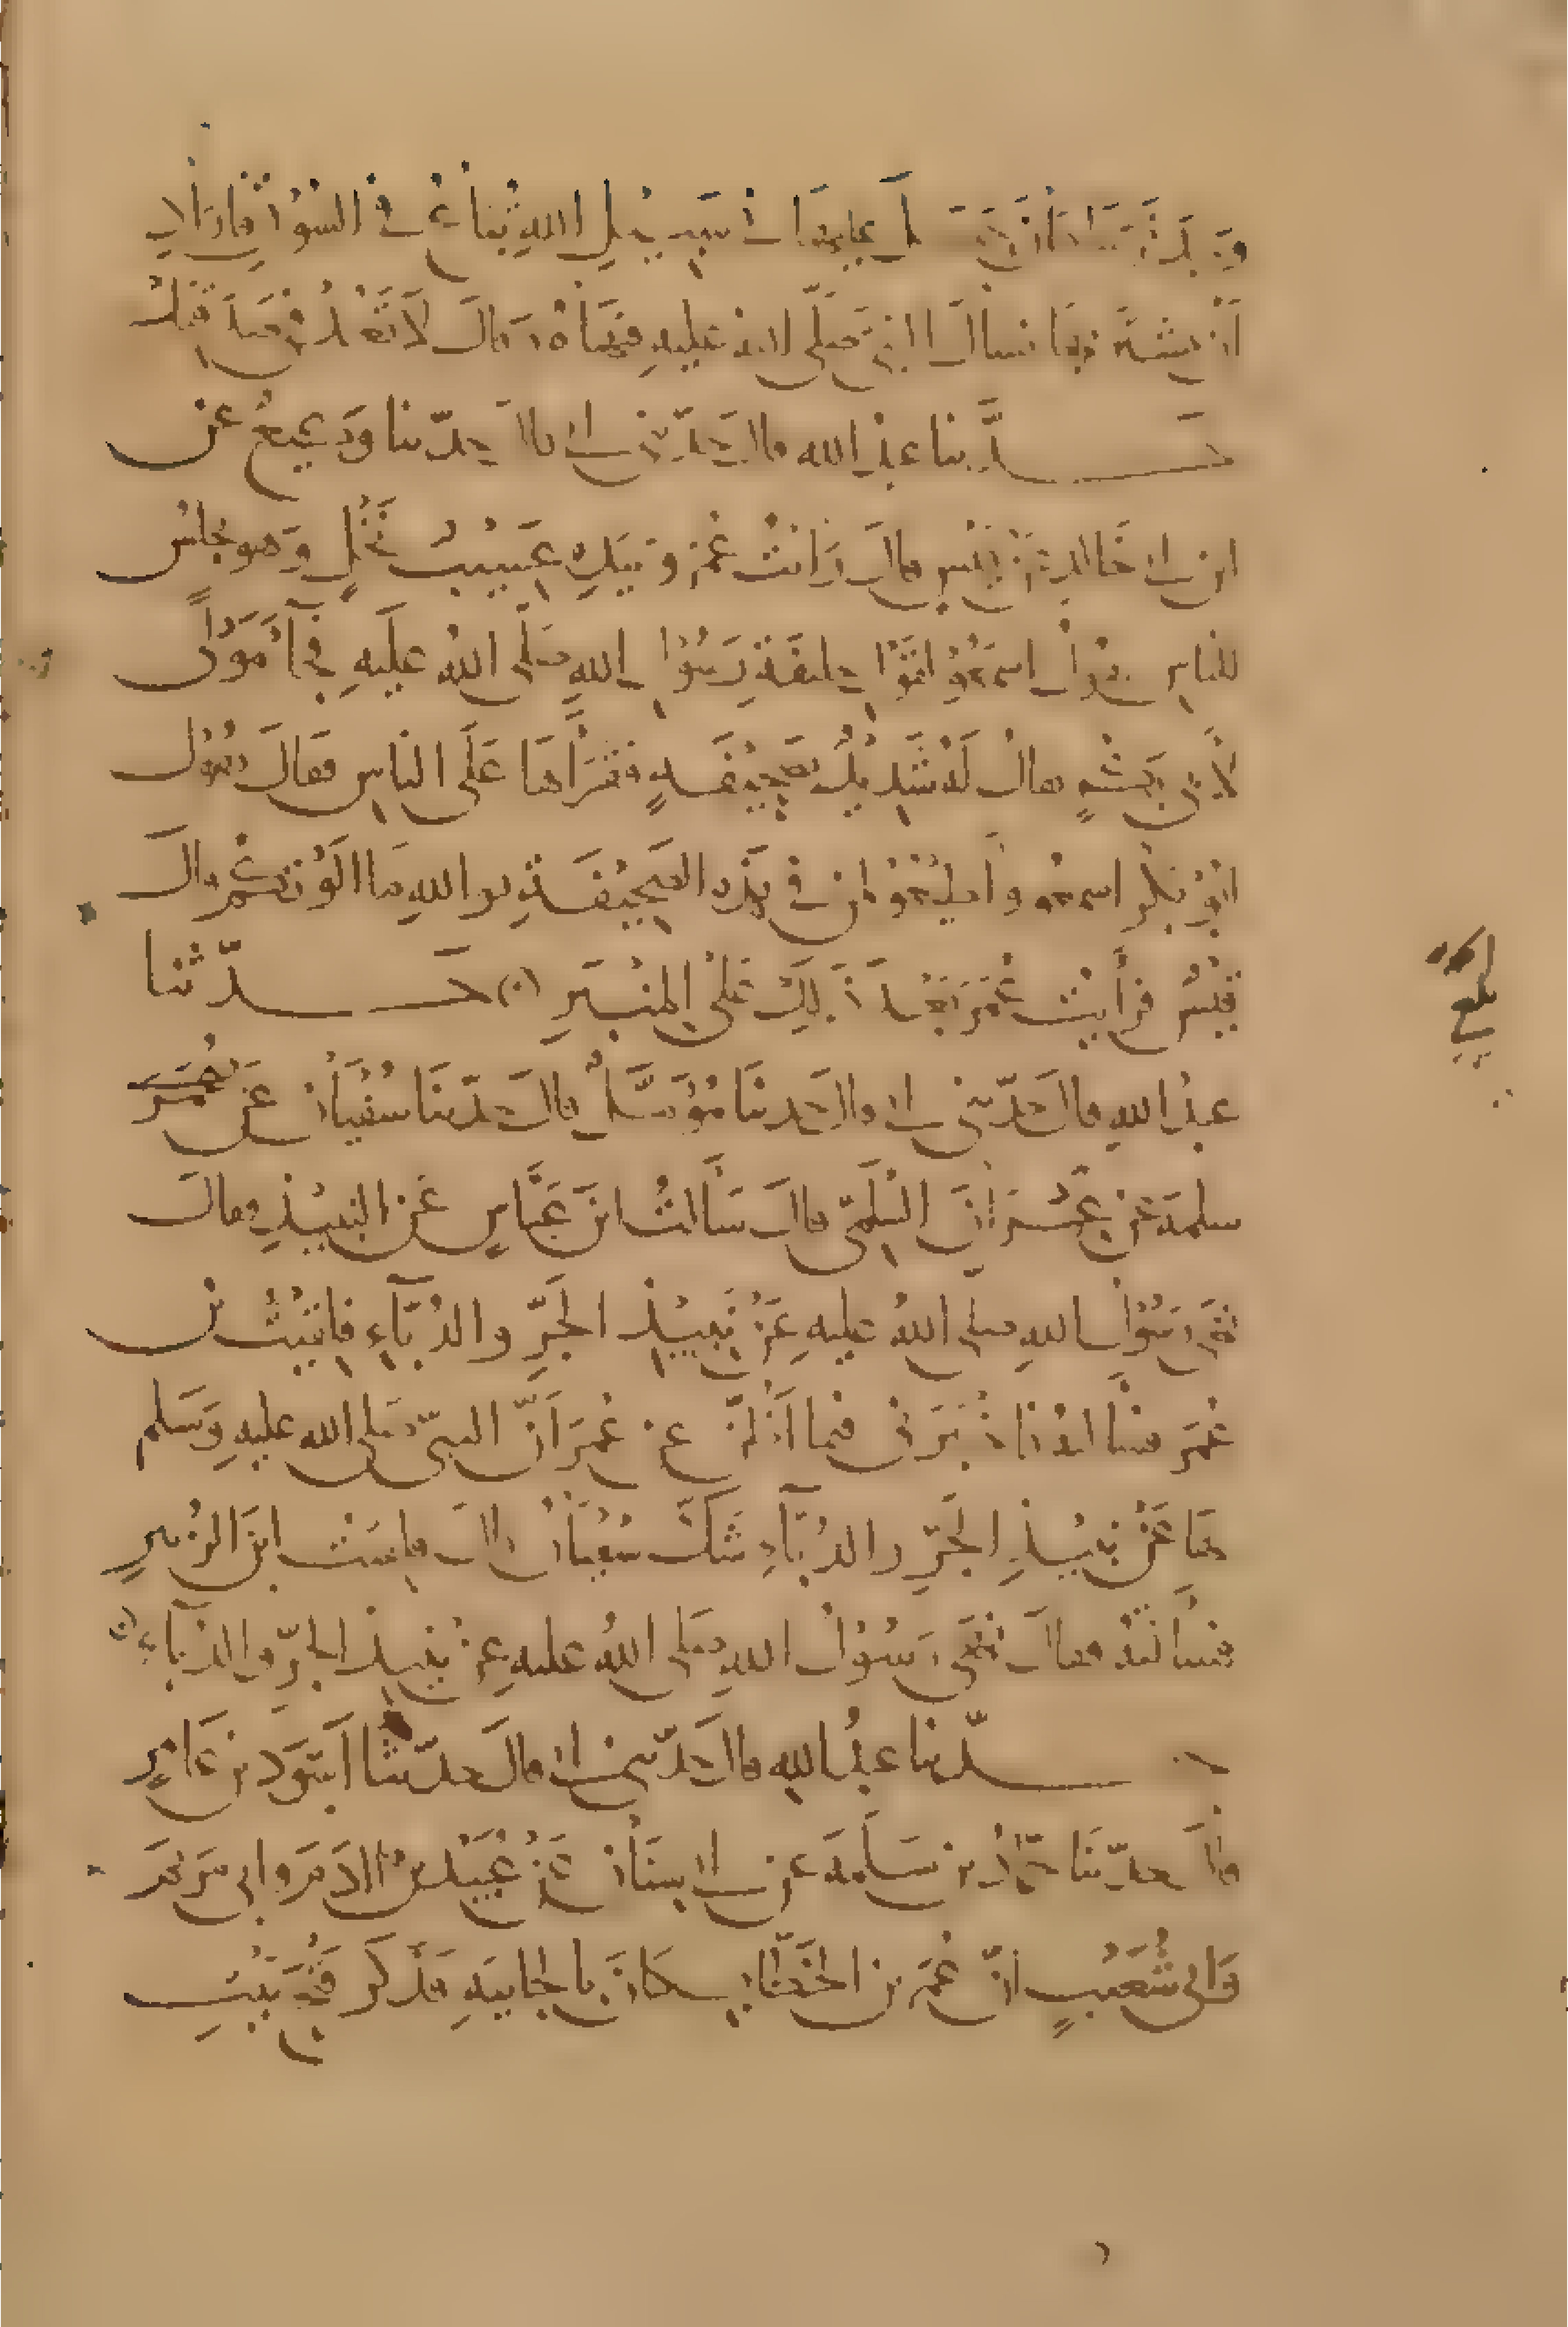 حمل عليها في سبيل الله تباع في السوق فاراد
ان يشتريها فسأل النبي صلى الله عليه فنهاه وقال لا تعد في صدقتك
حدثنا عبد الله قال حدثني ابي قال حدثنا وكيع عن
ابن ابي خالد عن قيس قال رأيت عمر وبيده عسيب نخل وهو يجلس
للناس يقول اسمعوا لقول خليفة رسول الله صلى الله عليه فجآء مولى
لابي بكر يقال له شديد بصحيفة فقرأها على الناس فقال يقول
ابو بكر اسمعوا واطيعوا لمن في هذه الصحيفة فوالله ما الوتكم قال
قيس فرأيت عمر بعد ذلك على المنبر حدثنا
عبد الله قال حدثني ابي قال حدثنا مؤمل قال حدثنا سفيان عن
سلمة عن عمران السلمي قال سألت ابن عباس عن النبيذ فقال
نهى رسول الله صلى الله عليه عن نبيذ الجر والدبآء فلقيت ابن
عمر فسألته فاخبرني فيما اظن عن عمر ان النبي صلى الله عليه وسلم
نها عن نبيذ الجر والدبآء شك سفيان قال فلقيت ابن الزبير
فسألته فقال نهى رسول الله صلى الله عليه عن نبيذ الجر والدبآء
حدثنا عبد الله قال حدثني ابي قال حدثنا اسود بن عامر
قال حدثنا حماد بن سلمة عن ابي سنان عن عبيد بن ادم وابي مريم
وابي شعيب ان عمر بن الخطاب كان بالجابية فذكر فتح بيت
بلغ